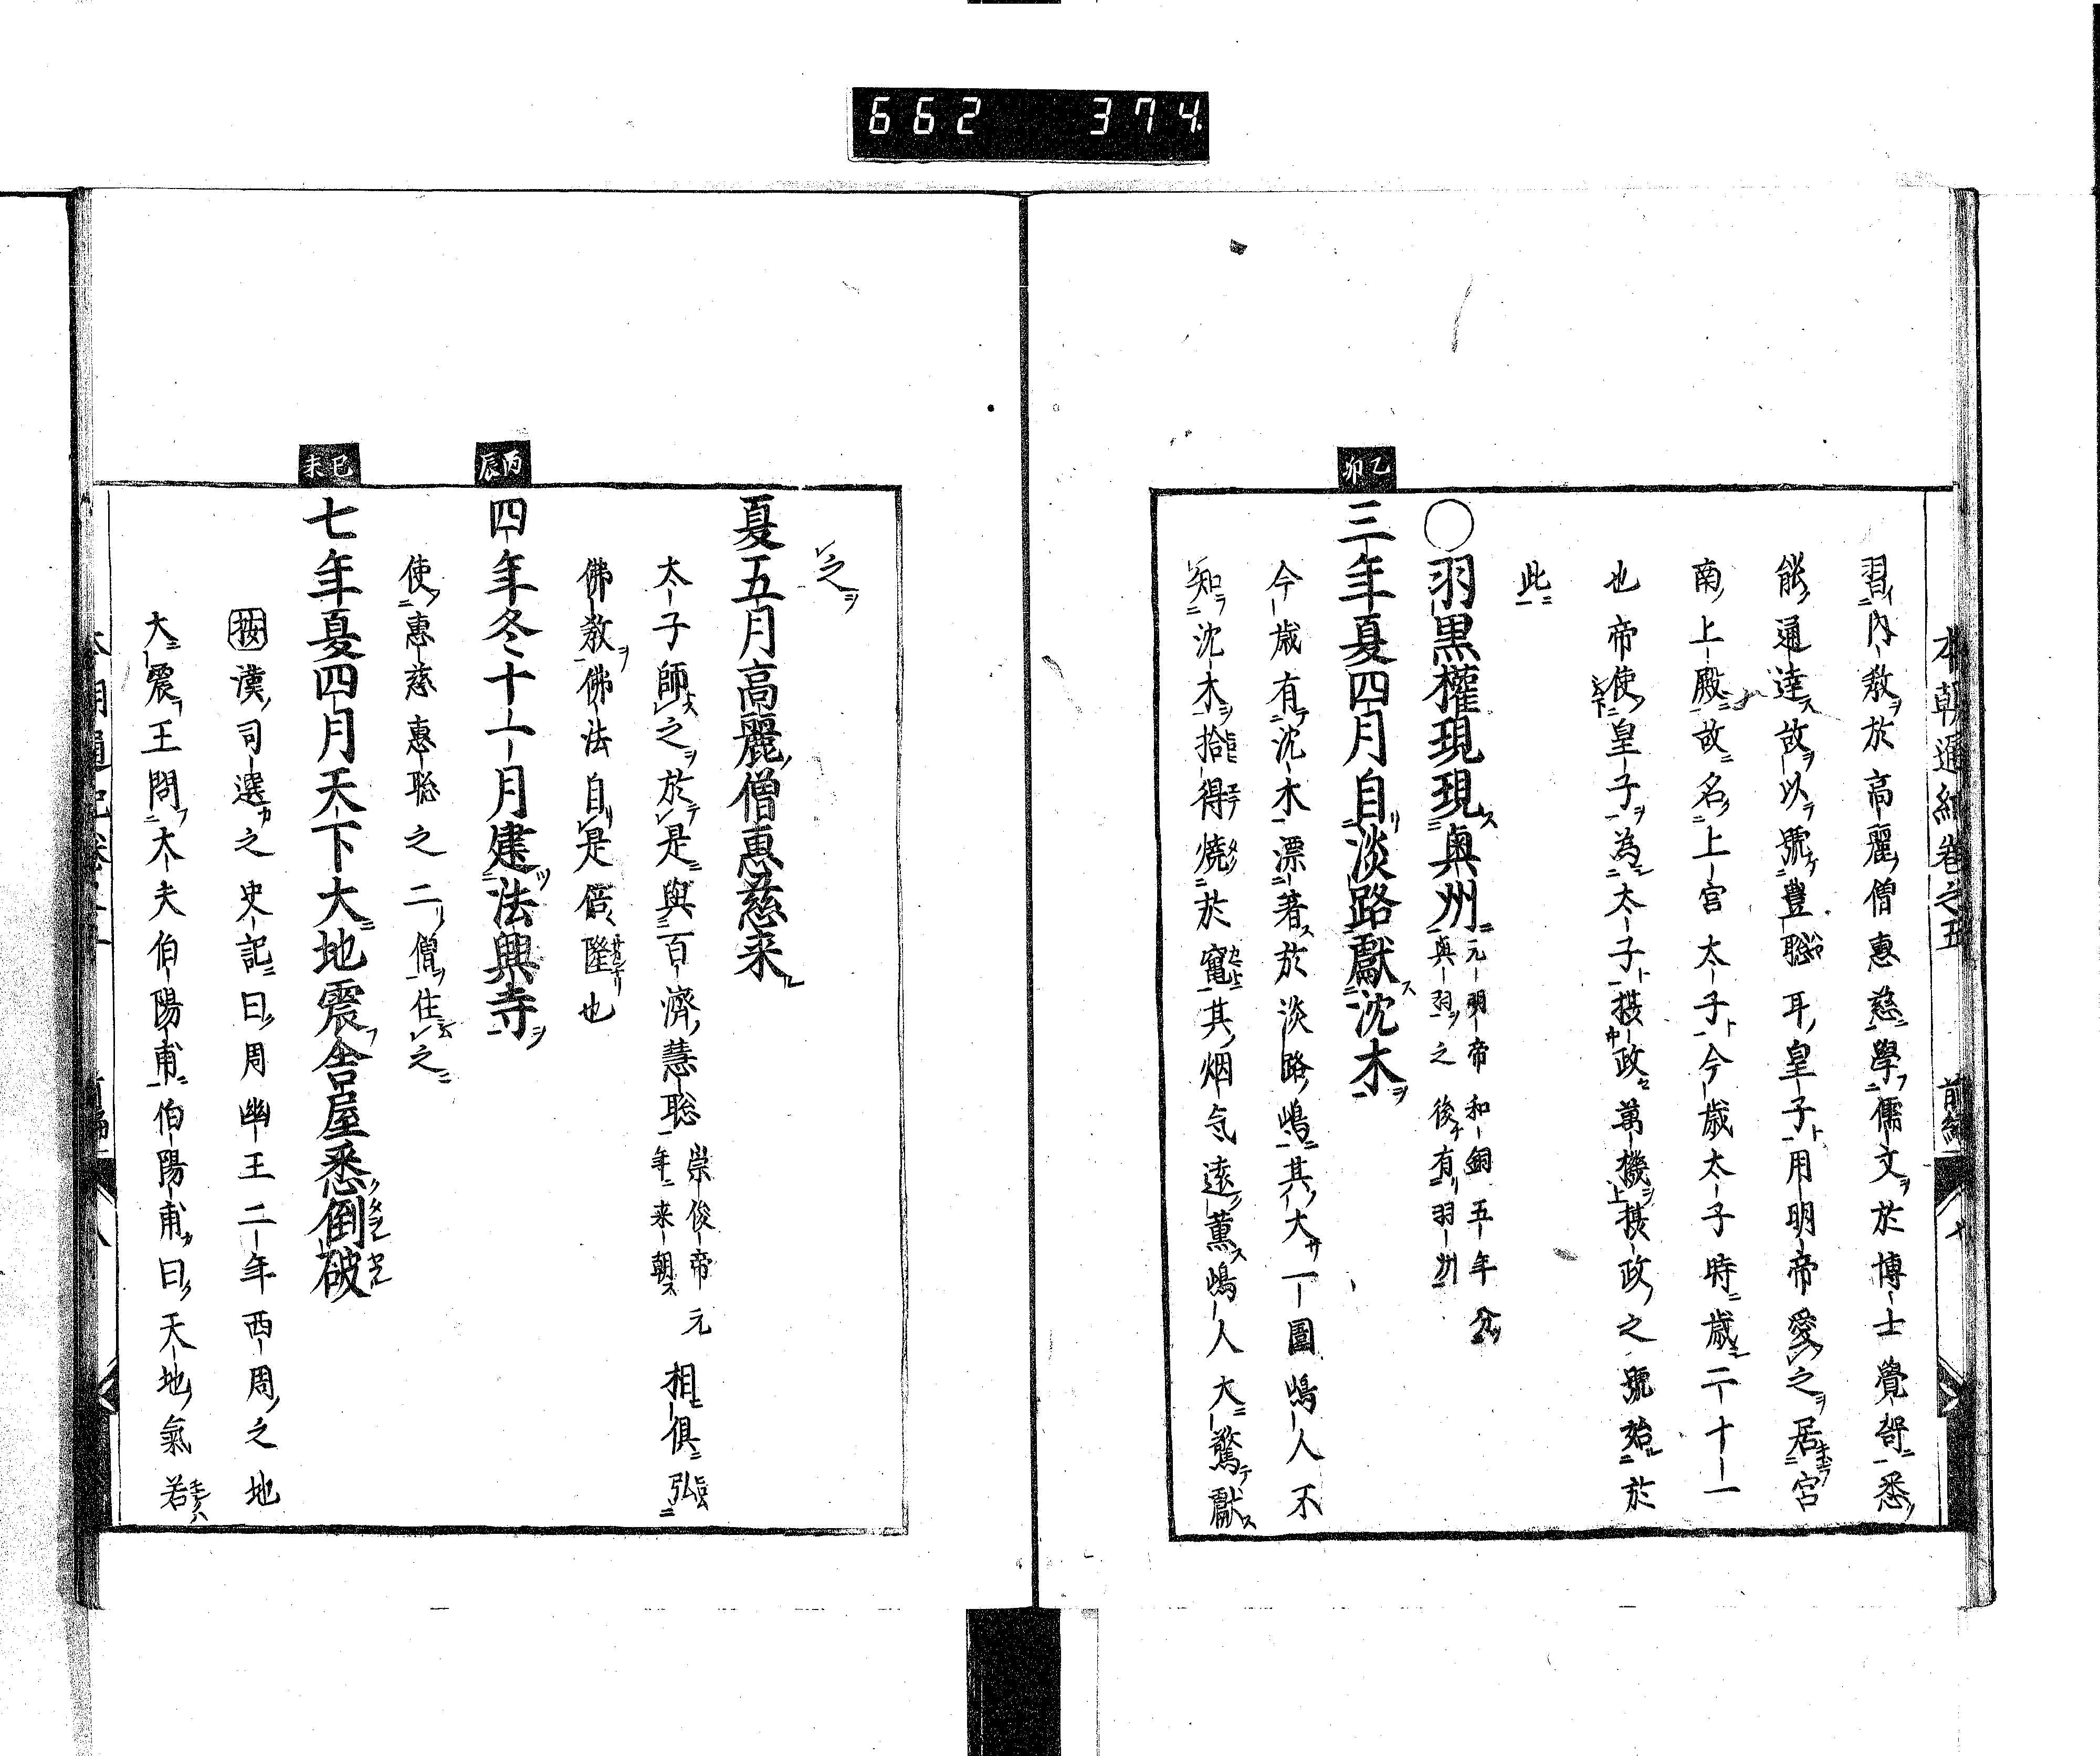 662 374
本朝通紀卷之五 前編
習內教於高麗僧惠慈學儒文於博士覺哿悉
能通達故以號豐聡耳皇子用明帝愛之居宮
南上殿故名上宮太子今歲太子時歲二十一
也帝使皇子為太子摂政萬機摂政之號始於
此
○羽黒權現現奥州元明帝和銅五年分奥羽之後有羽州
乙卯
三年夏四月自淡路獻沈木
今歲有沈木漂著於淡路嶋其大一圍嶋人不
知沈木拾得燒於竃其烟气遠薫嶋人大驚獻
之
夏五月高麗僧惠慈来
太子師之於是與百濟慧聡崇俊帝元年来朝相俱弘
佛教佛法自是倍隆也
丙辰
四年冬十一月建法興寺
使惠慈惠聡之二僧住之
巳未
七年夏四月天下大地震舎屋悉倒破
按漢司選之史記曰周幽王二年西周之地
大震王問大夫伯陽甫伯陽甫曰天地氣若